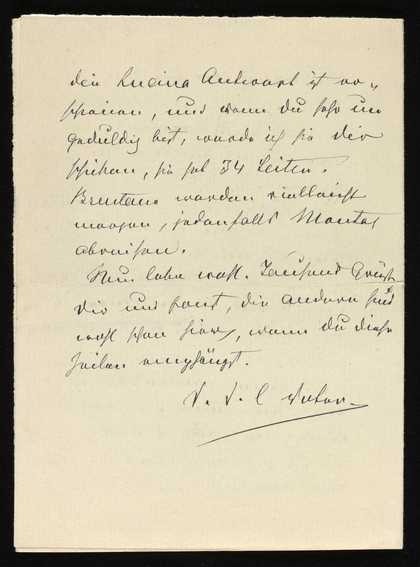 Antwort ist er-
schienen, und wenn du sehr un
geduldig bist, werde ich sie dir
schicken, sie hat 34 Seiten.
Brentano werden vielleicht
morgen, jedenfalls Montag
abreisen.
Nun lebe wohl. Tausend Grüße
dir und, die andern sind
wohl schon, wenn du diese
Zeilen empfängst.
Vater